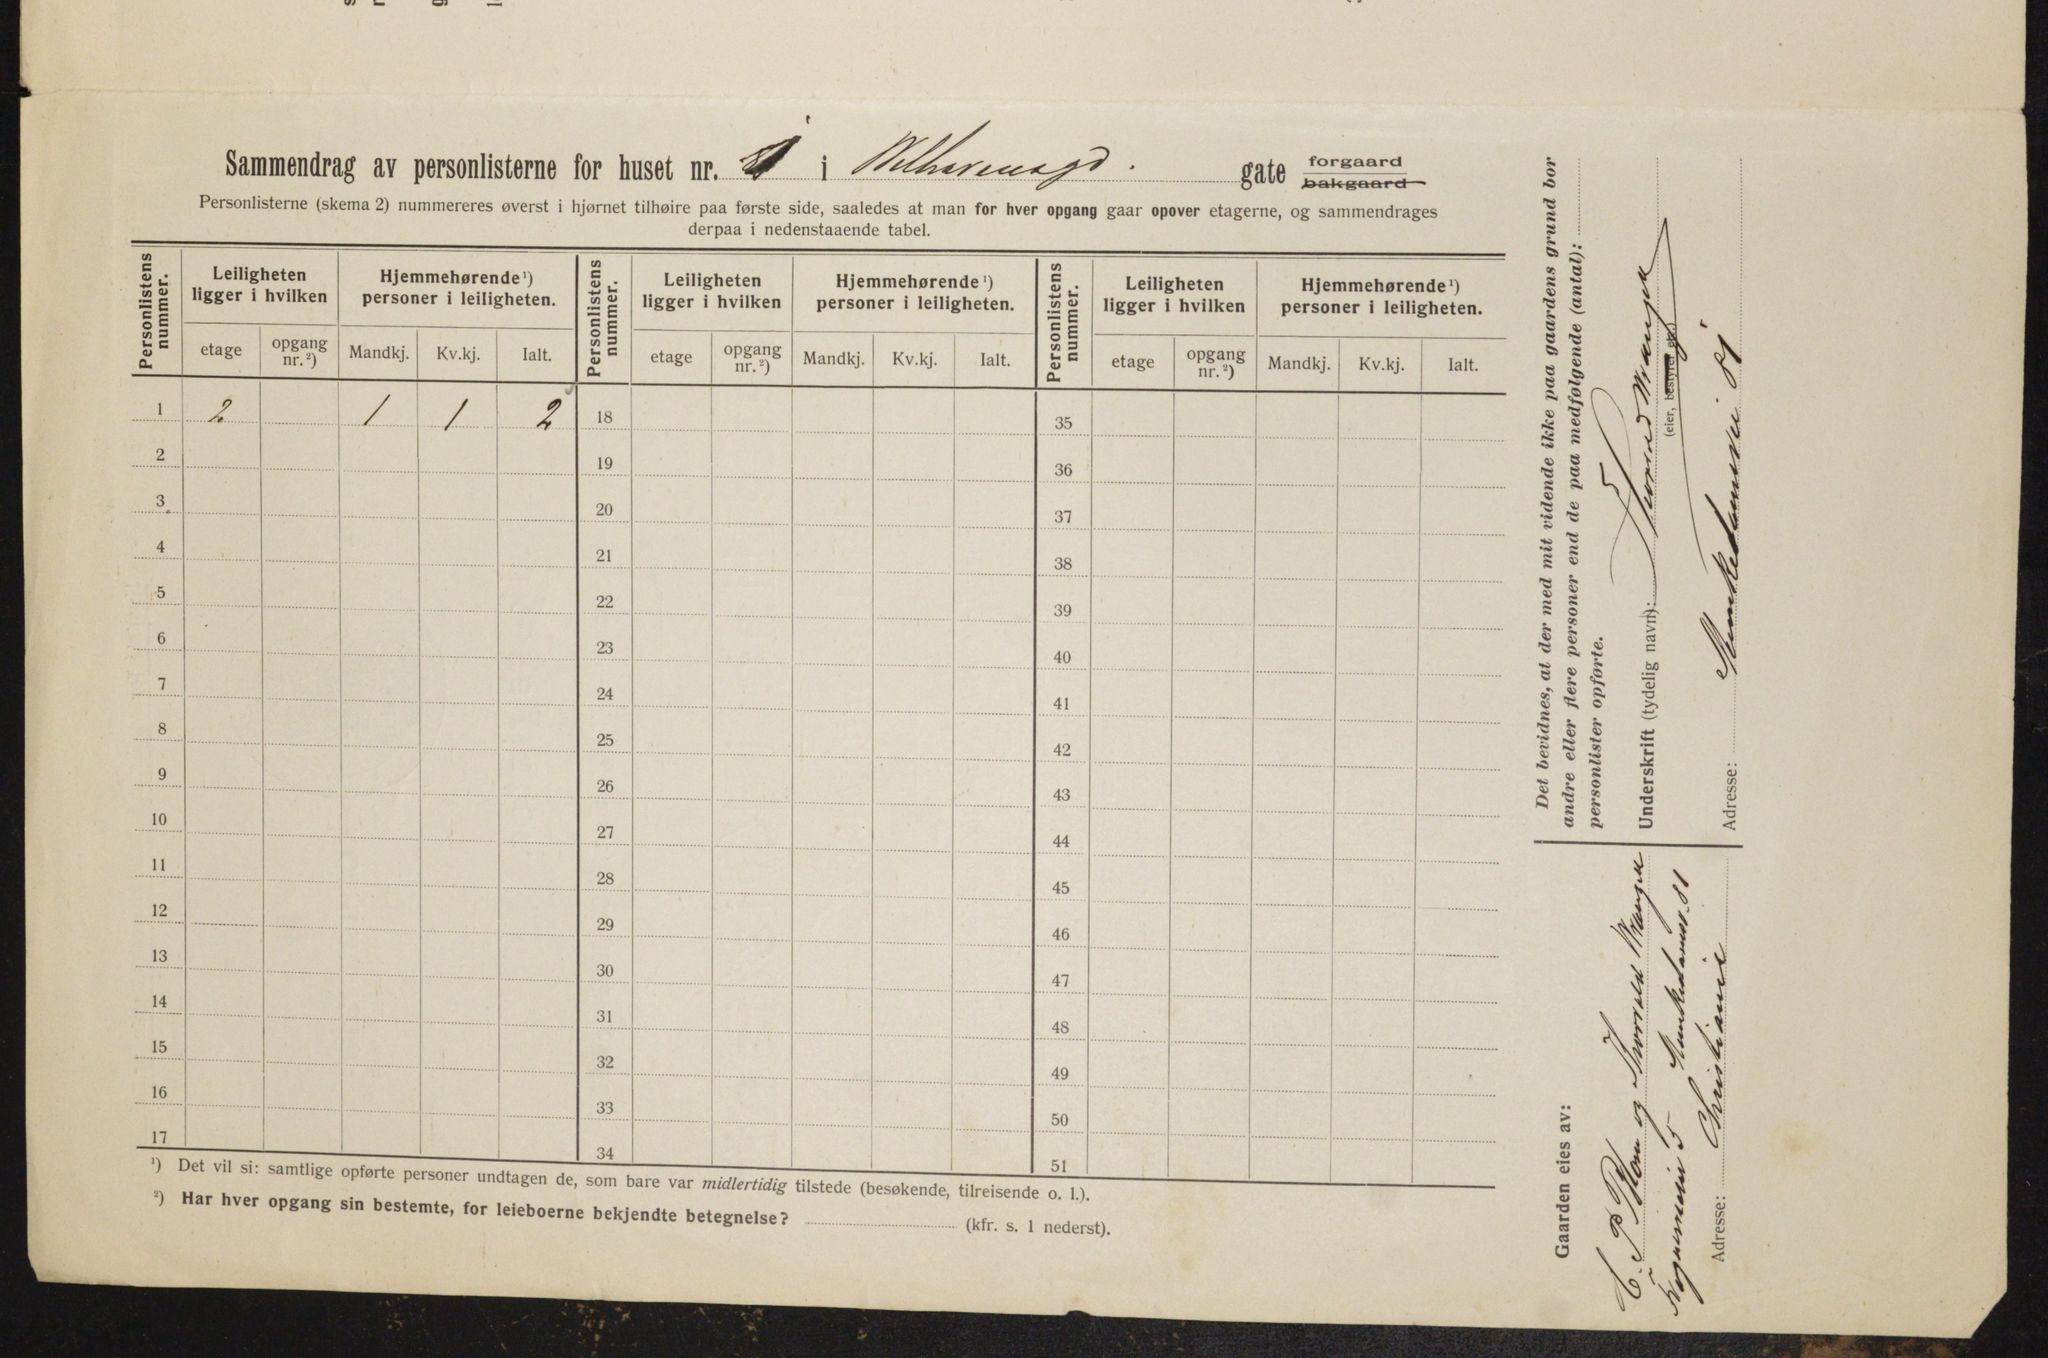 Sammendrag av personlisterne for huset nr. 1 i Welhavensgd. gate forgaard
bakgaard
Personlisterne (skema 2) nummereres øverst i hjørnet tilhøire paa første side, saaledes at man for hver opgang gaar opover etagerne, og sammendrages
derpaa i nedenstaaende tabel.
Personlistens nummer. Leiligheten ligger i hvilken Hjemmehørende ¹) personer i leiligheten.
etage opgang nr. ²) Mandkj. Kv.kj. Ialt.
Personlistens nummer. Leiligheten ligger i hvilken Hjemmehørende ¹) personer i leiligheten.
etage opgang nr. ²) Mandkj. Kv.kj. Ialt.
Personlistens nummer. Leiligheten ligger i hvilken Hjemmehørende ¹) personer i leiligheten.
etage opgang nr. ²) Mandkj. Kv.kj. Ialt.
1 2 1 1 2 18 35
2 19 36
3 20 37
4 21 38
5 22 39
6 23 40
7 24 41
8 25 42
9 26 43
10 27 44
11 28 45
12 29 46
13 30 47
14 31 48
15 32 49
16 33 50
17 34 51
¹) Det vil si: samtlige opførte personer undtagen de, som bare var midlertidig tilstede (besøkende, tilreisende o. l.).
²) Har hver opgang sin bestemte, for leieboerne bekjendte betegnelse? (kfr. s. 1 nederst).
Det bevidnes, at der med mit vidende ikke paa gaardens grund bor
andre eller flere personer end de paa medfølgende (antal):
personlister opførte.
Underskrift (tydelig navn):
(eier, bestyrer etc.)
Adresse: Munkedamsvei 81
Gaarden eies av:
og Thorvald
5 Munkedamsv. 81
Adresse: Christiania